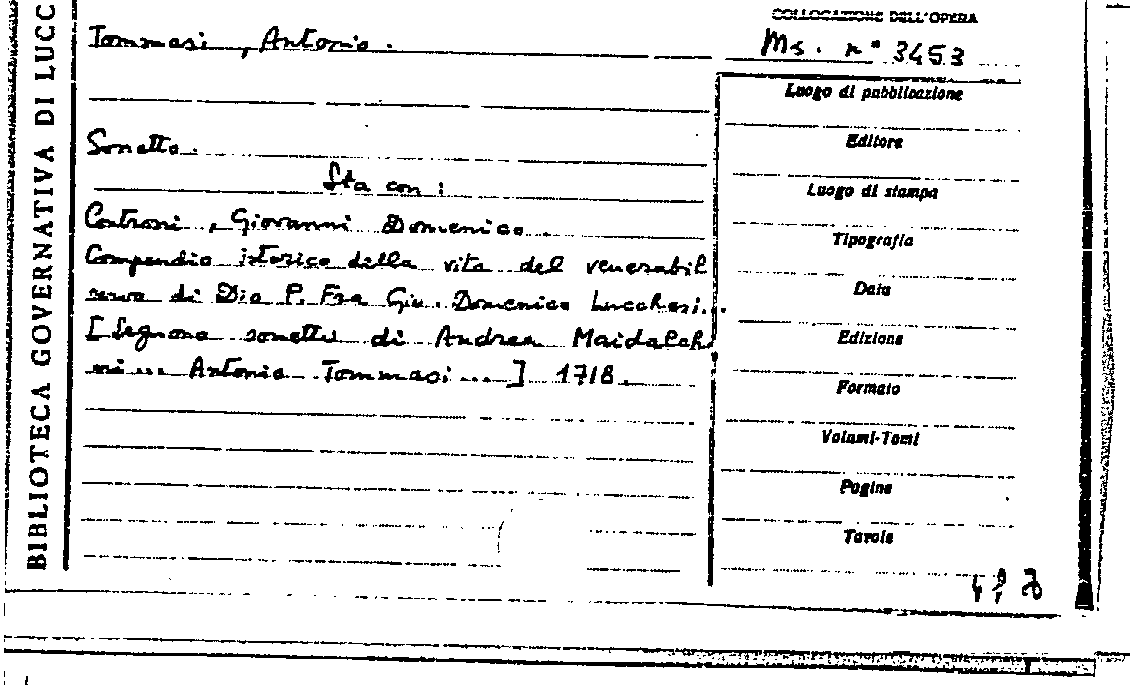 BIBLIOTECA GOVERNATIVA DI LUCC
Tommasi, Antonio.
Sonetto.
Sta con:
Controni, Giovanni Domenico.
Compendio istorico della vita del venerabil
servo di Dio P. Fra Giu. Domenico Lucchesi...
[Segnono sonetti di Andrea Maidalch
ni... Antonio Tommasi...] 1718.
COLLOCAZIONE DELL'OPERA
Ms. n° 3453
Luogo di pubblicazione
Editore
Luogo di stampa
Tipografia
Data
Edizione
Formato
Volumi-Tomi
Pagine
Tavole